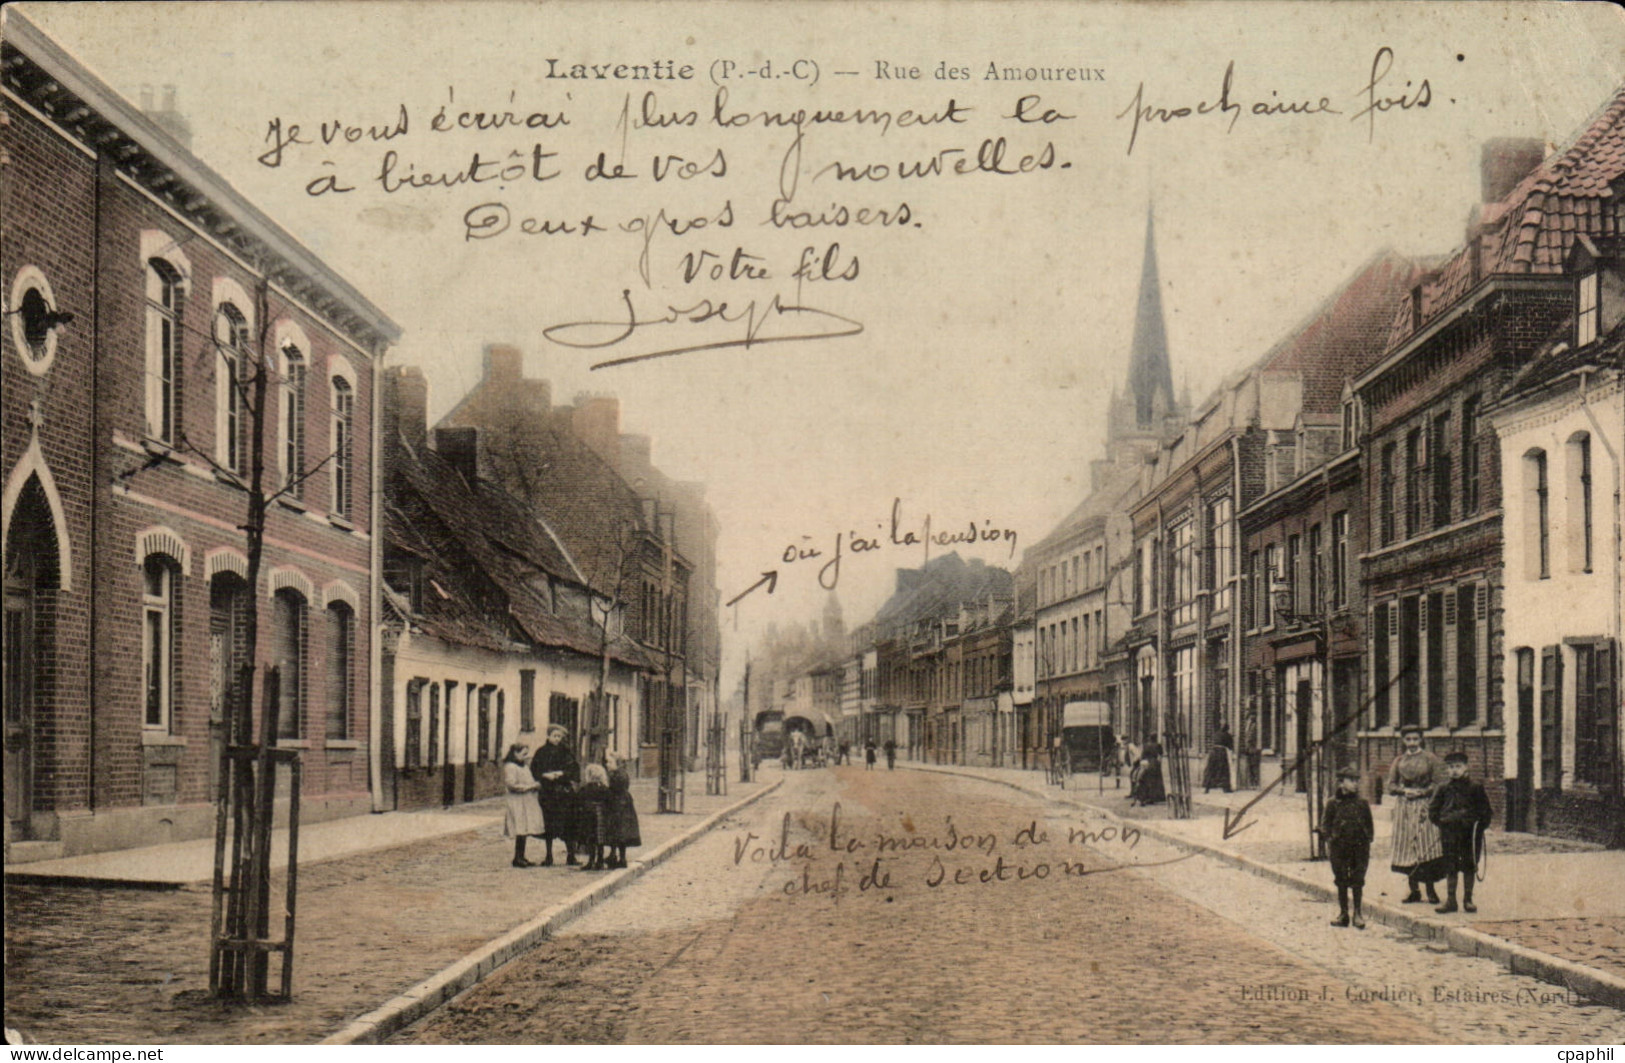 Laventie (P.-d.-C) — Rue des Amoureux
Je vous écrirai plus longuement la prochaine fois.
à bientôt de vos nouvelles.
Deux gros baisers.
Votre fils
Joseph
où j'ai la pension
Voilà la maison de mon
chef de Section
Edition J. Cordier, Estaires (Nord)
cpaphil